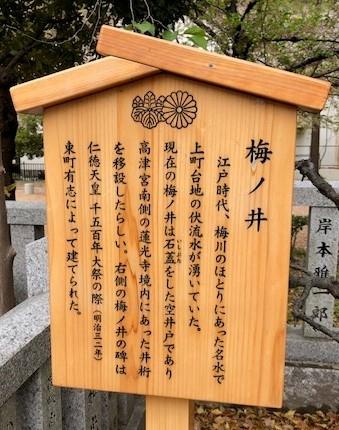 梅ノ井
江戸時代、梅川のほとりにあった名水で
上町台地の伏流水が湧いていた。
現在の梅ノ井は石蓋をした空井戸であり
いしぶた
高津宮南側の蓮光寺境内にあった井桁
を移設したらしい。右側の梅ノ井の碑は
仁徳天皇 千五百年大祭の際(明治三二年)
東町有志によって建てられた。
岸本雅一郎